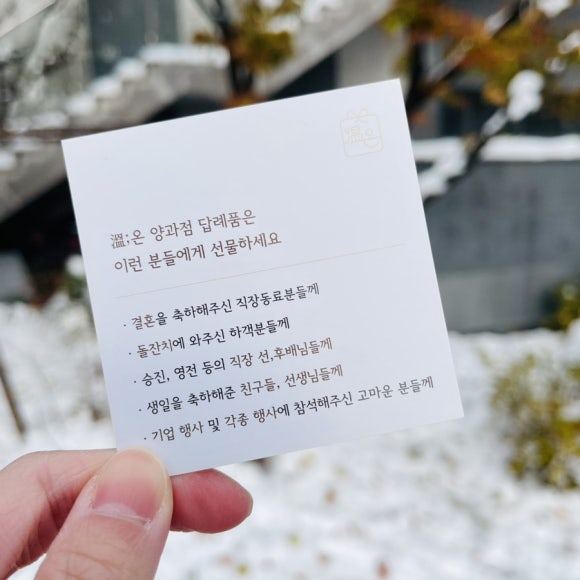 溫온
溫;온 양과점 답례품은
이런 분들에게 선물하세요
· 결혼을 축하해주신 직장동료분들께
· 돌잔치에 와주신 하객분들께
· 승진, 영전 등의 직장 선,후배님들께
· 생일을 축하해준 친구들, 선생님들께
· 기업 행사 및 각종 행사에 참석해주신 고마운 분들께